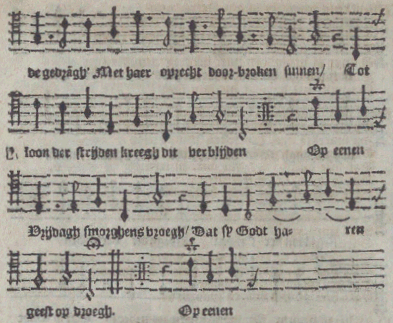 de gedrágh' Met haer oprecht door-vroken sinnen/ Tot
loon der strijden kreegh dit verblijden Op eenen
Vrijdagh smorghens vroegh/ Dat sy Godt ha- ren
geest op droegh. Op eenen